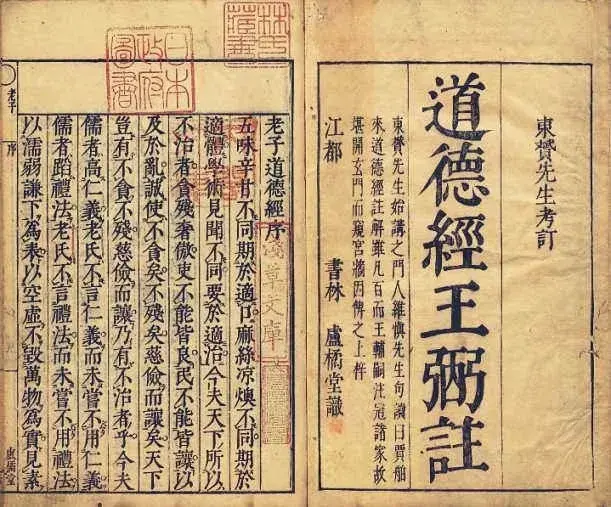 東贇先生考訂
道德經王弼註
東贇先生始講之門人維慎先生句讀曰賈舶
來道德經註解雖凡百而王輔嗣注冠諸家故
堪開玄門而窺宮牆因傳之上梓
江都 書林 盧橘堂識
老子道德經序
五味辛甘不同期於適口麻絲凉燠不同期於
適體學術見聞不同要於適治今夫天下所以
不治者貪殘奢傲吏不能皆良民不能皆讓以
及於亂誠使不貪矣不殘矣慈儉而讓矣天下
豈有不貪不殘慈儉而讓乃有不治者乎今夫
儒者高仁義老氏不言仁義而未嘗不用仁義
儒者蹈禮法老氏不言禮法而未嘗不用禮法
以濡弱謙下為表以空虛不毀萬物為實見素
老子 序
日本
政府
圖書
淺草文庫